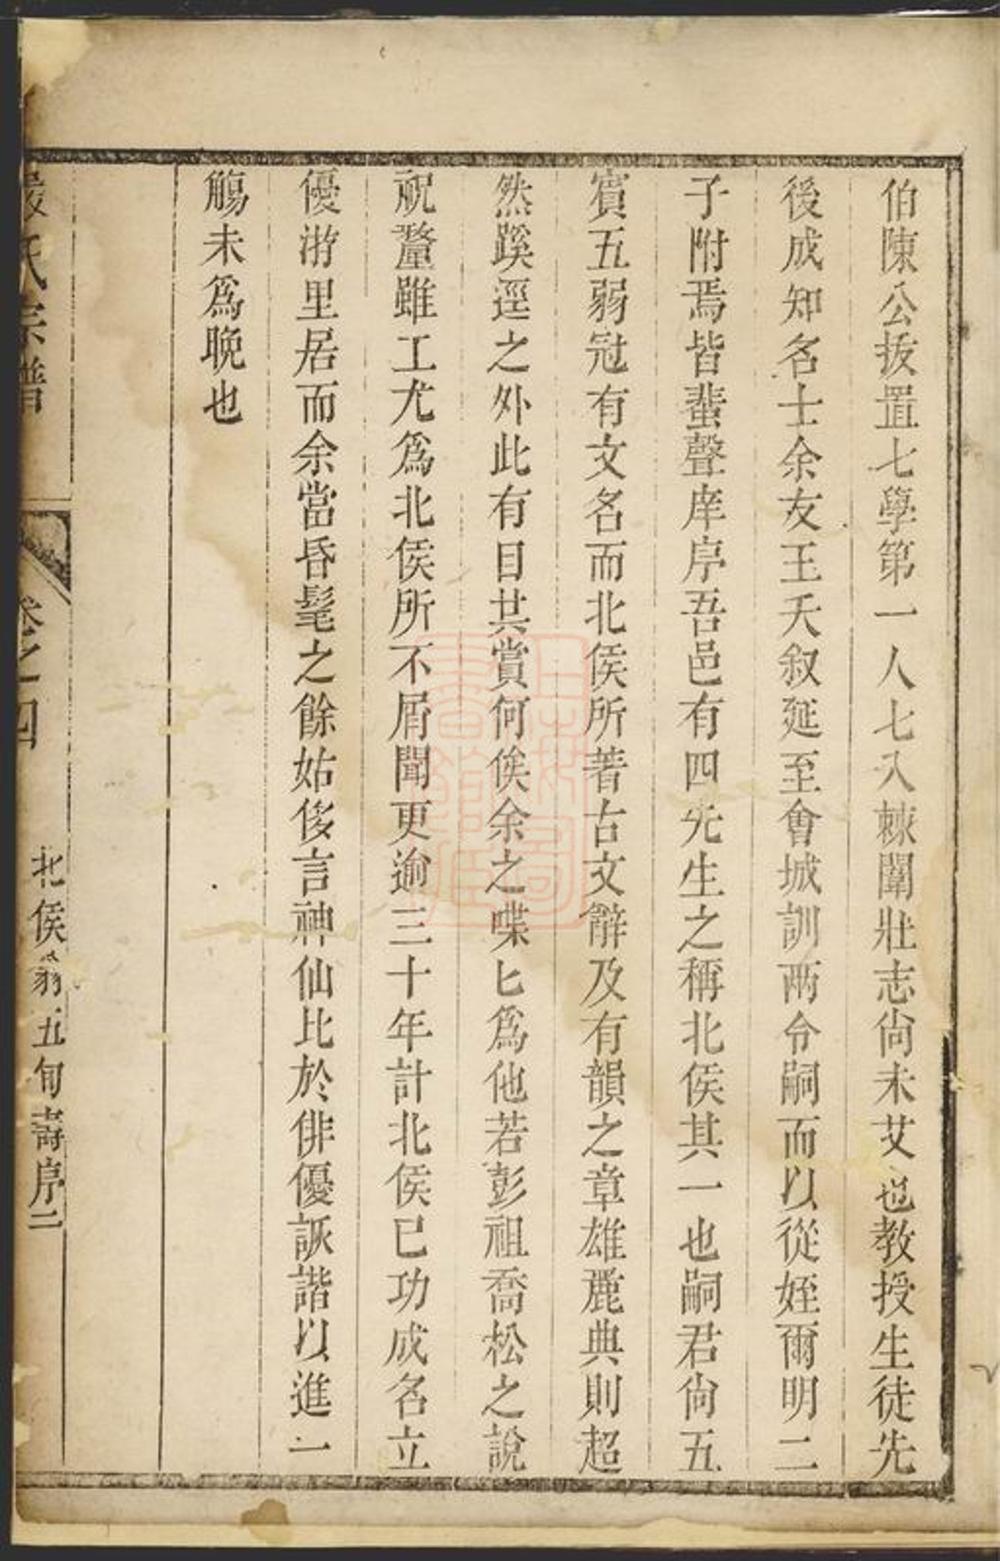 伯陳公抜置七學第一人七入棘闈壯志尙未艾也教授生徒先
後成知名士余友王天叙延至會城訓兩令嗣而以從姪爾明二
子附焉皆蜚聲庠序吾邑有四先生之稱北侯其一也嗣君尙五
賓五弱冠有文名而北侯所著古文辭及有韻之章雄麗典則超
然蹊逕之外此有目共賞何俟余之喋匕爲他若彭祖喬松之說
祝釐雖工尤爲北侯所不屑聞更逾三十年計北侯已功成名立
優游里居而余當昏髦之餘姑俟言神仙比於俳優詼諧以進一
觴未爲晚也
嚴氏宗譜
卷之四
北侯翁五旬壽序二